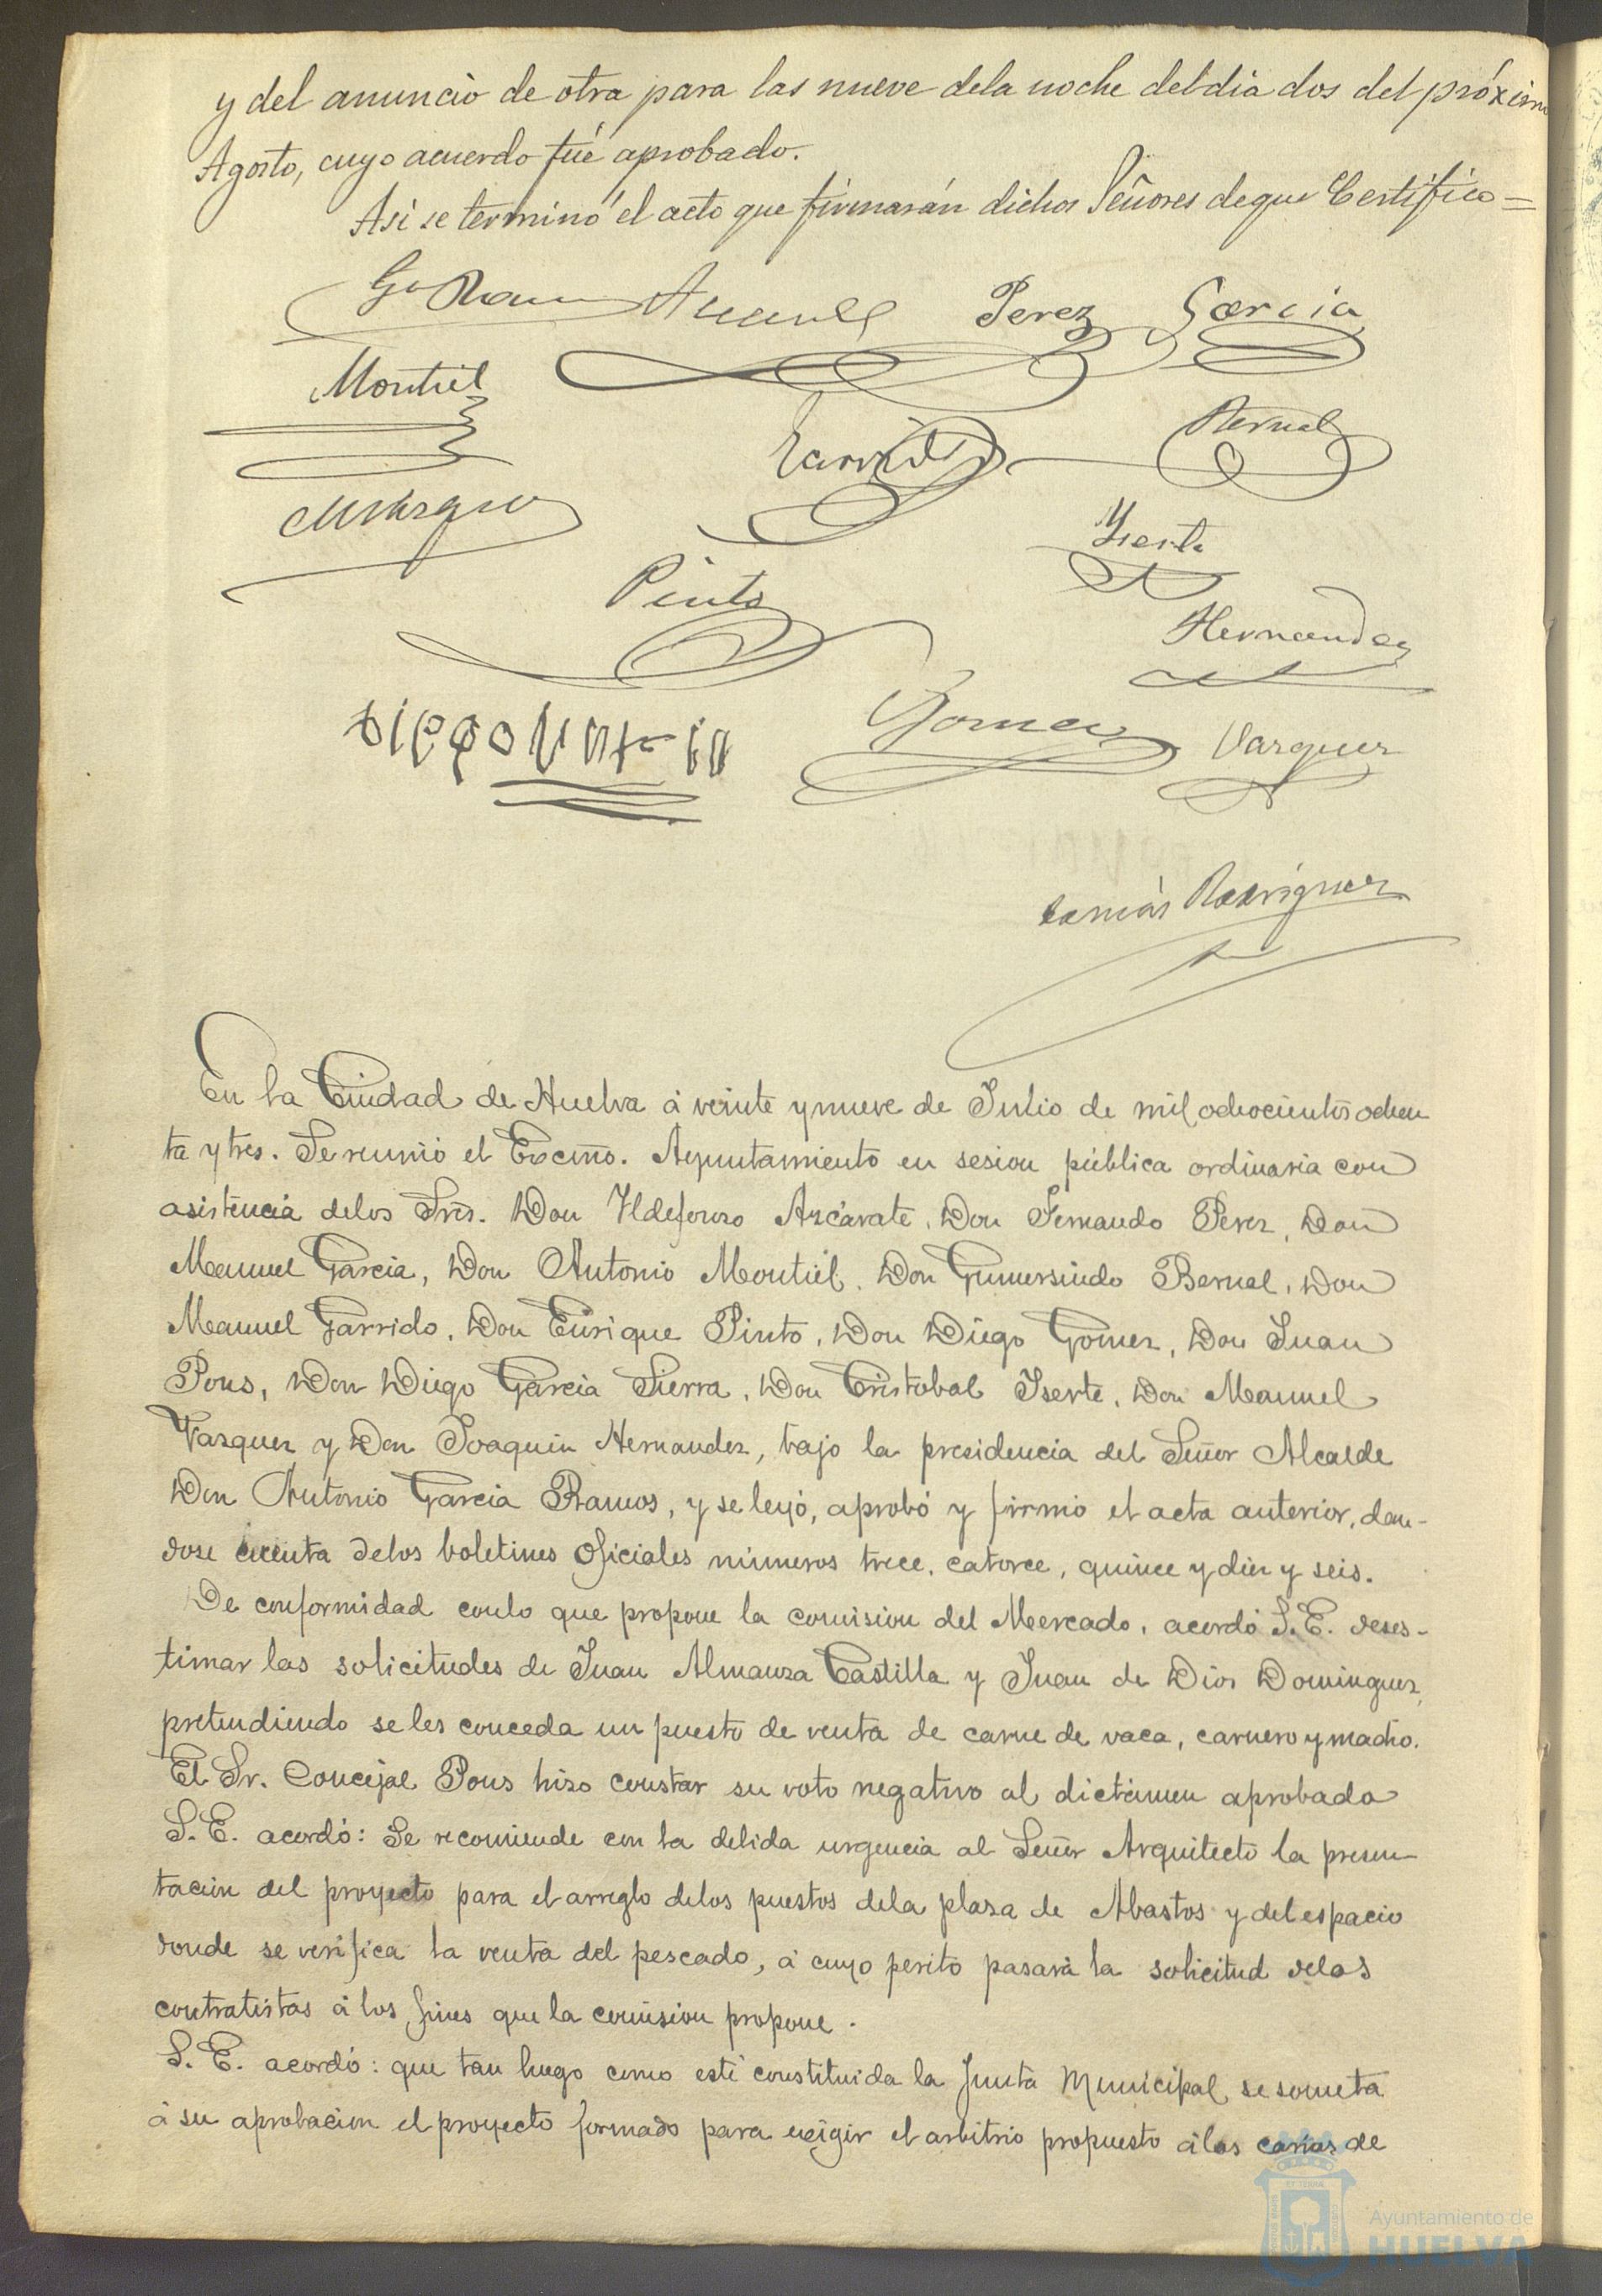 y del anuncio de otra para las nueve dela noche deldia dos del próximo
Agosto, cuyo acuerdo fué aprobado.
Asi se terminó el acto que firmarán dichos Señores deque Certifico=
Gª Ramos Azcarate Perez Garcia
Montiel
Garrido Bernal
Vazquez
Pinto Yserte
Hernandez
Gomez Vazquez
Tomás Rodriguez
En la Ciudad de Huelva á veinte y nueve de Julio de mil ochocientos ochen
ta y tres. Se reunió el Excmo. Ayuntamiento en sesion pública ordinaria con
asistencia delos Sres. Don Yldefonso Azcárate, Don Fernando Perez, Don
Manuel Garcia, Don Antonio Montiel, Don Gumersindo Bernal, Don
Manuel Garrido, Don Enrique Pinto, Don Diego Gomez, Don Juan
Pons, Don Diego Garcia Sierra, Don Cristobal Yserte, Don Manuel
Vazquez y Don Joaquin Hernandez, bajo la presidencia del Señor Alcalde
Don Antonio Garcia Ramos, y se leyó, aprobó y firmó el acta anterior, dan-
dose cuenta delos boletines oficiales números trece, catorce, quince y diez y seis.
De conformidad conlo que propone la comision del Mercado, acordó S.E. deses-
timar las solicitudes de Juan Almanza Castilla y Juan de Dios Dominguez,
pretendiendo se les conceda un puesto de venta de carne de vaca, carnero y macho.
El Sr. Concejal Pons hizo constar su voto negativo al dictámen aprobado
S.E. acordó: Se recomiende con la debida urgencia al Señor Arquitecto la presen-
tacion del proyecto para el arreglo delos puestos dela plaza de Abastos y del espacio
donde se verifica la venta del pescado, á cuyo perito pasará la solicitud delos
contratistas á los fines que la comision propone.
S.E. acordó: que tan luego como esté constituida la Junta Municipal se someta
á su aprobacion el proyecto formado para exigir el arbitrio propuesto á las casas de
Ayuntamiento de
HUELVA